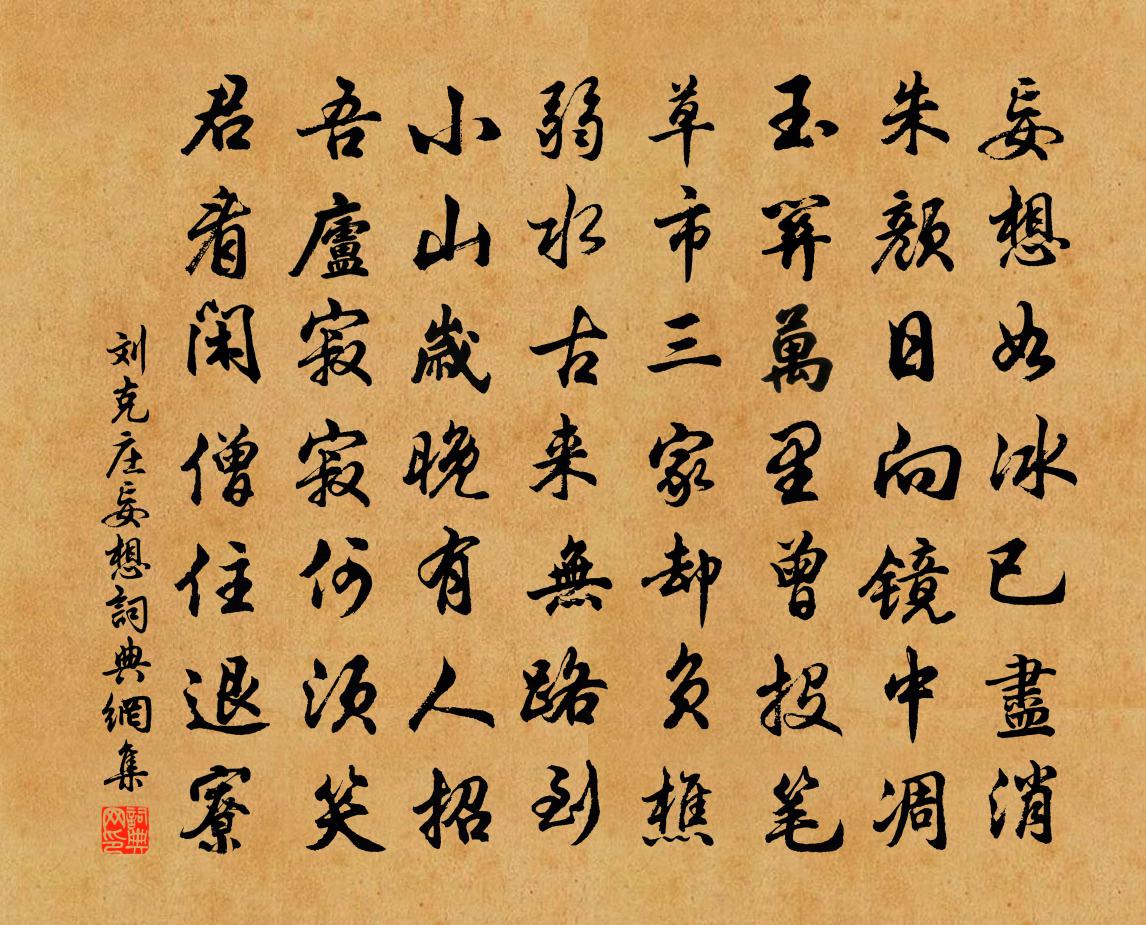 妄想如冰已盡消
朱顏日向镜中凋
玉關萬里曾投笔
草市三家却负樵
弱水古来無路到
小山歳晚有人招
吾廬寂寂何须笑
君看闲僧住退寮
刘克庄妄想詞典網集
詞典網印